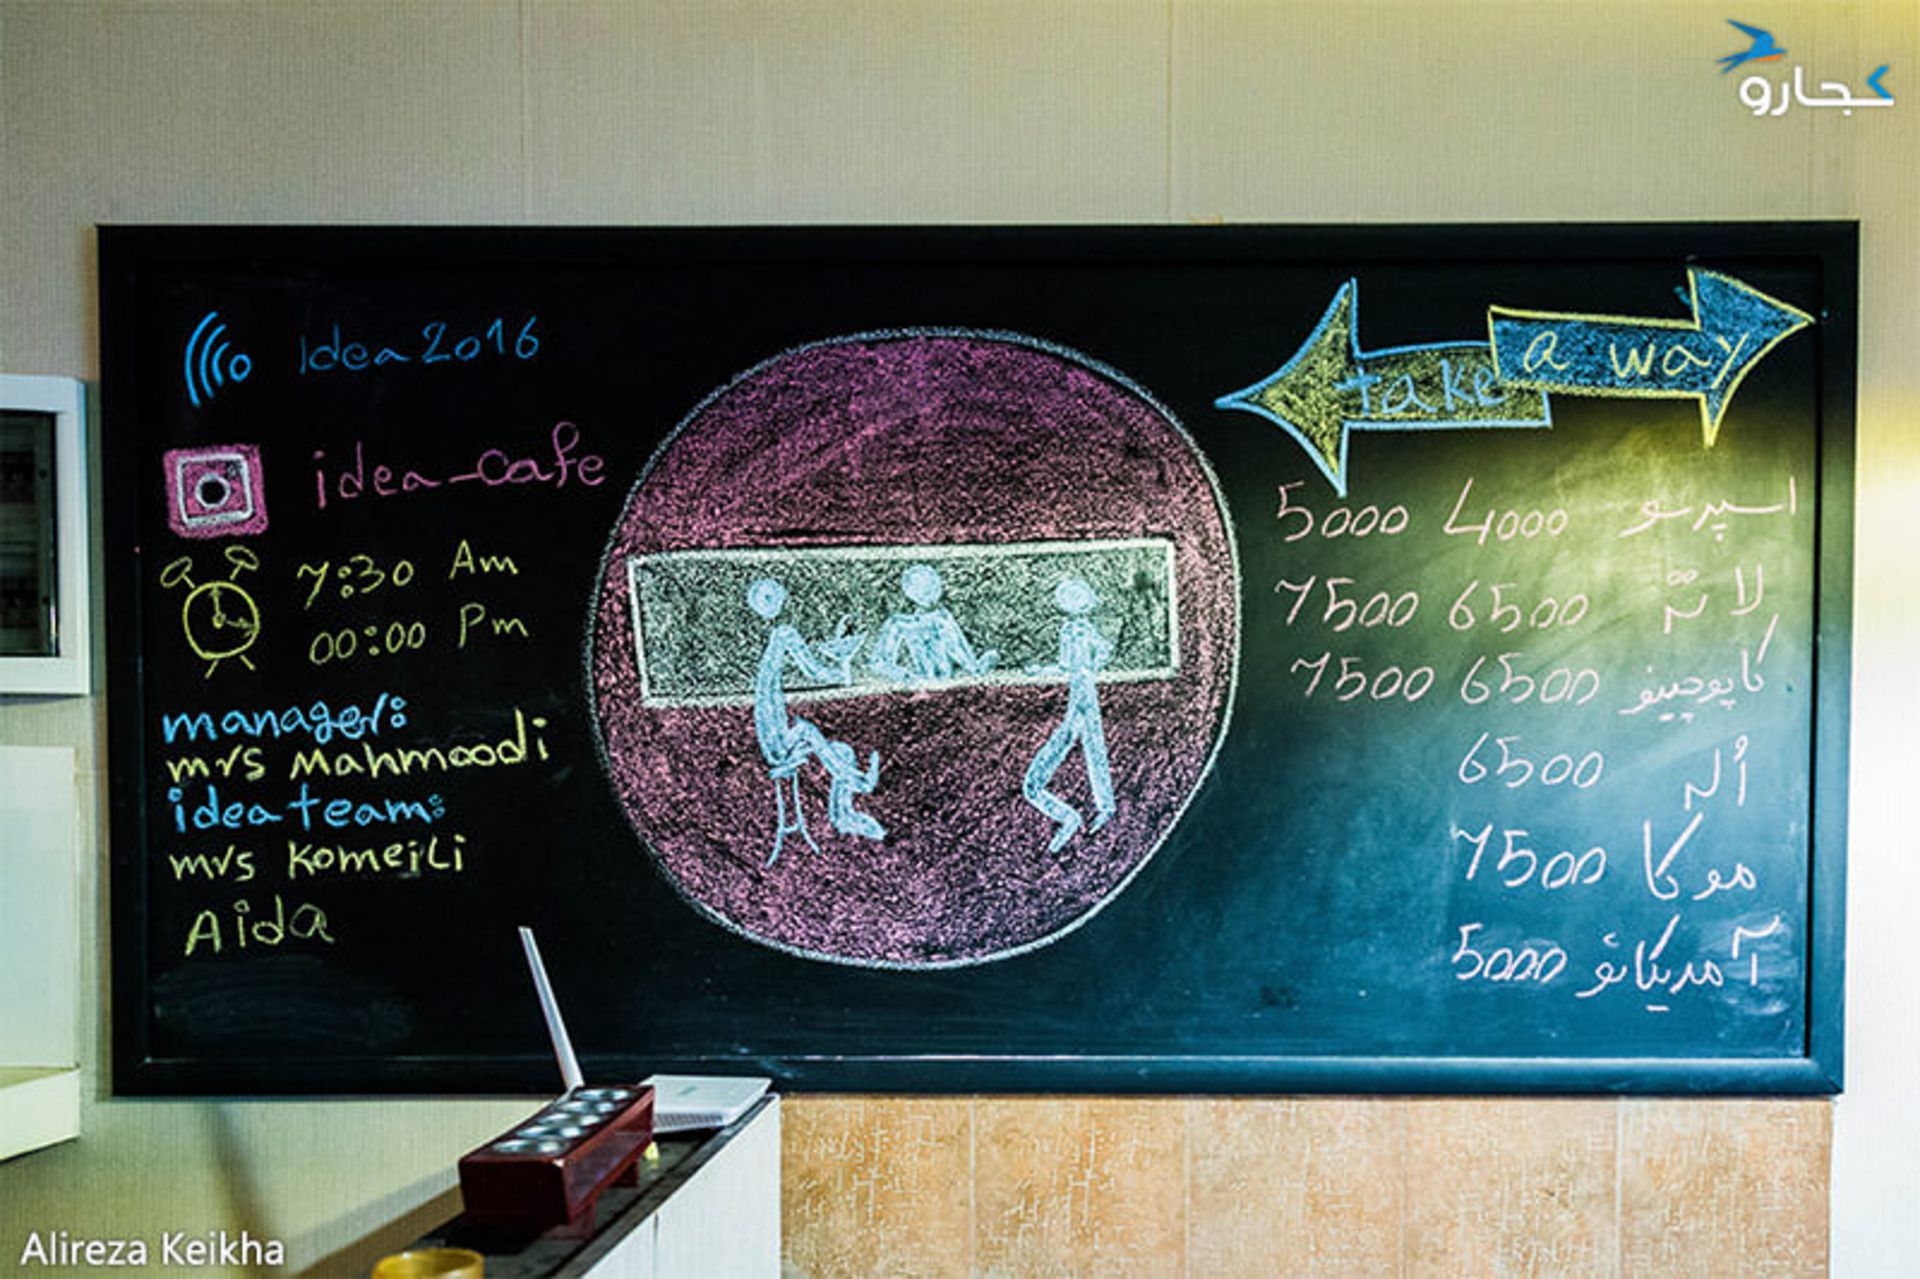 کجارو
Idea2016
idea_cafe
7:30 Am
00:00 Pm
manager:
mrs Mahmoodi
idea team:
mrs Komeili
Aida
take a way
اسپرسو 4000 5000
لاته 6500 7500
کاپوچینو 6500 7500
اُله 6500
موکا 7500
آمریکانو 5000
Alireza Keikha